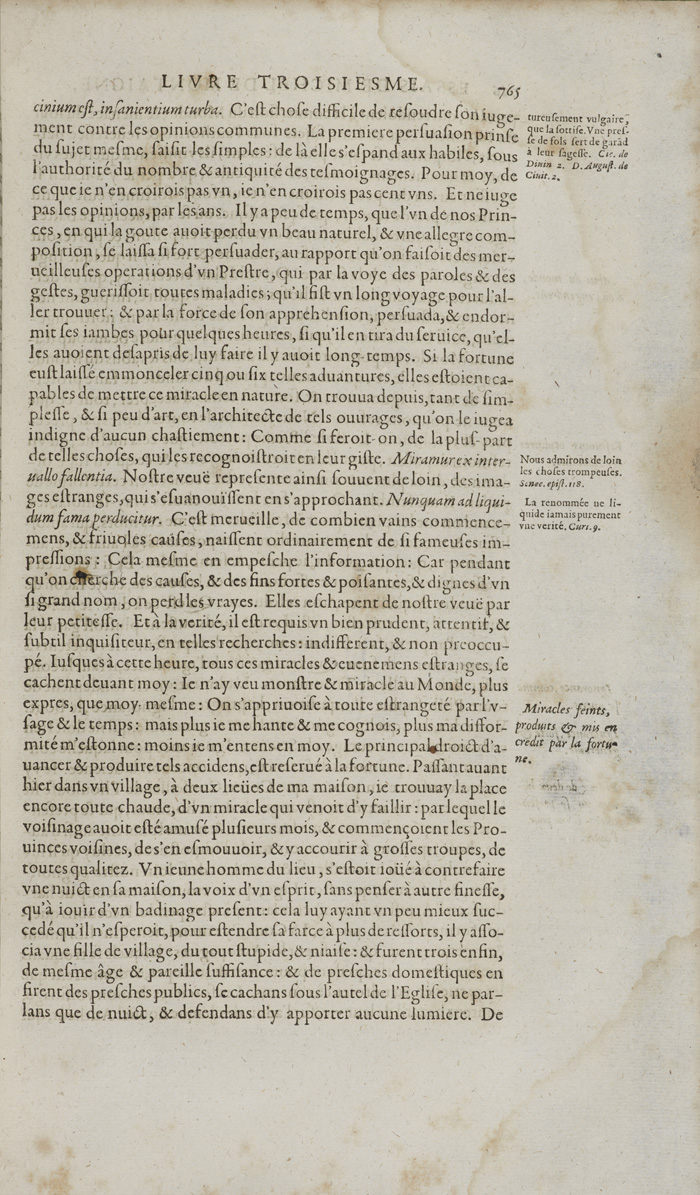 LIVRE TROISIESME. 765
cinium est, insanientium turba. C'est chose difficile de resoudre son iuge-
ment contre les opinions communes. La premiere persuasion prinse
du sujet mesme, saisit les simples: de là elle s'espand aux habiles, sous
l'authorité du nombre & antiquité des tesmoignages. Pour moy, de
ce que ie n'en croirois pas vn, ie n'en croirois pas cent vns. Et ne iuge
pas les opinions, par les ans. Il y a peu de temps, que l'vn de nos Prin-
ces, en qui la goute auoit perdu vn beau naturel, & vne allegre com-
position, se laissa si fort persuader, au rapport qu'on faisoit des mer-
ueilleuses operations d'vn Prestre, qui par la voye des paroles & des
gestes, guerissoit toutes maladies; qu'il fist vn long voyage pour l'al-
ler trouuer: & par la force de son apprehension, persuada, & endor-
mit ses iambes pour quelques heures, si qu'il en tira du seruice, qu'el-
les auoient desapris de luy faire il y auoit long-temps. Si la fortune
eust laissé emmonceler cinq ou six telles aduantures, elles estoient ca-
pables de mettre ce miracle en nature. On trouua depuis, tant de sim-
plesse, & si peu d'art, en l'architecte de tels ouurages, qu'on le iugea
indigne d'aucun chastiement: Comme si feroit-on, de la plus-part
de telles choses, qui les recognoistroit en leur giste. Miramur ex inter-
uallo fallentia. Nostre veuë represente ainsi souuent de loin, des ima-
ges estranges, qui s'esuanouïssent en s'approchant. Nunquam ad liqui-
dum fama perducitur. C'est merueille, de combien vains commence-
mens, & friuoles causes, naissent ordinairement de si fameuses im-
pressions: Cela mesme en empesche l'information: Car pendant
qu'on cherche des causes, & des fins fortes & poisantes, & dignes d'vn
si grand nom, on perd les vrayes. Elles eschapent de nostre veuë par
leur petitesse. Et à la verité, il est requis vn bien prudent, attentif, &
subtil inquisiteur, en telles recherches: indifferent, & non preoccu-
pé. Iusques à cette heure, tous ces miracles & euenemens estranges, se
cachent deuant moy: Ie n'ay veu monstre & miracle au Monde, plus
expres, que moy-mesme: On s'appriuoise à toute estrangeté par l'v-
sage & le temps: mais plus ie me hante & me cognois, plus ma diffor-
mité m'estonne: moins ie m'entens en moy. Le principal droict d'a-
uancer & produire tels accidens, est reserué à la fortune. Passant auant
hier dans vn village, à deux lieües de ma maison, ie trouuay la place
encore toute chaude, d'vn miracle qui venoit d'y faillir: par lequel le
voisinage auoit esté amusé plusieurs mois, & commençoient les Pro-
uinces voisines, de s'en esmouuoir, & y accourir à grosses troupes, de
toutes qualitez. Vn ieune homme du lieu, s'estoit ioüé à contrefaire
vne nuict en sa maison, la voix d'vn esprit, sans penser à autre finesse,
qu'à iouir d'vn badinage present: cela luy ayant vn peu mieux suc-
cedé qu'il n'esperoit, pour estendre sa farce à plus de ressorts, il y asso-
cia vne fille de village, du tout stupide, & niaise: & furent trois enfin,
de mesme âge & pareille suffisance: & de presches domestiques en
firent des presches publics, se cachans sous l'autel de l'Eglise, ne par-
lans que de nuict, & defendans d'y apporter aucune lumiere. De
tureusement vulgaire,
que la sottise. Vne pres-
se de fols sert de garãd
à leur sagesse. Cic. de
Diuin 2. D. August. de
Ciuit. 2.
Nous admirons de loin
les choses trompeuses.
Senec. epist. 118.
La renommée ne li-
quide iamais purement
vne verité. Curt. 9.
Miracles feints,
produits & mis en
credit par la fortu-
ne.